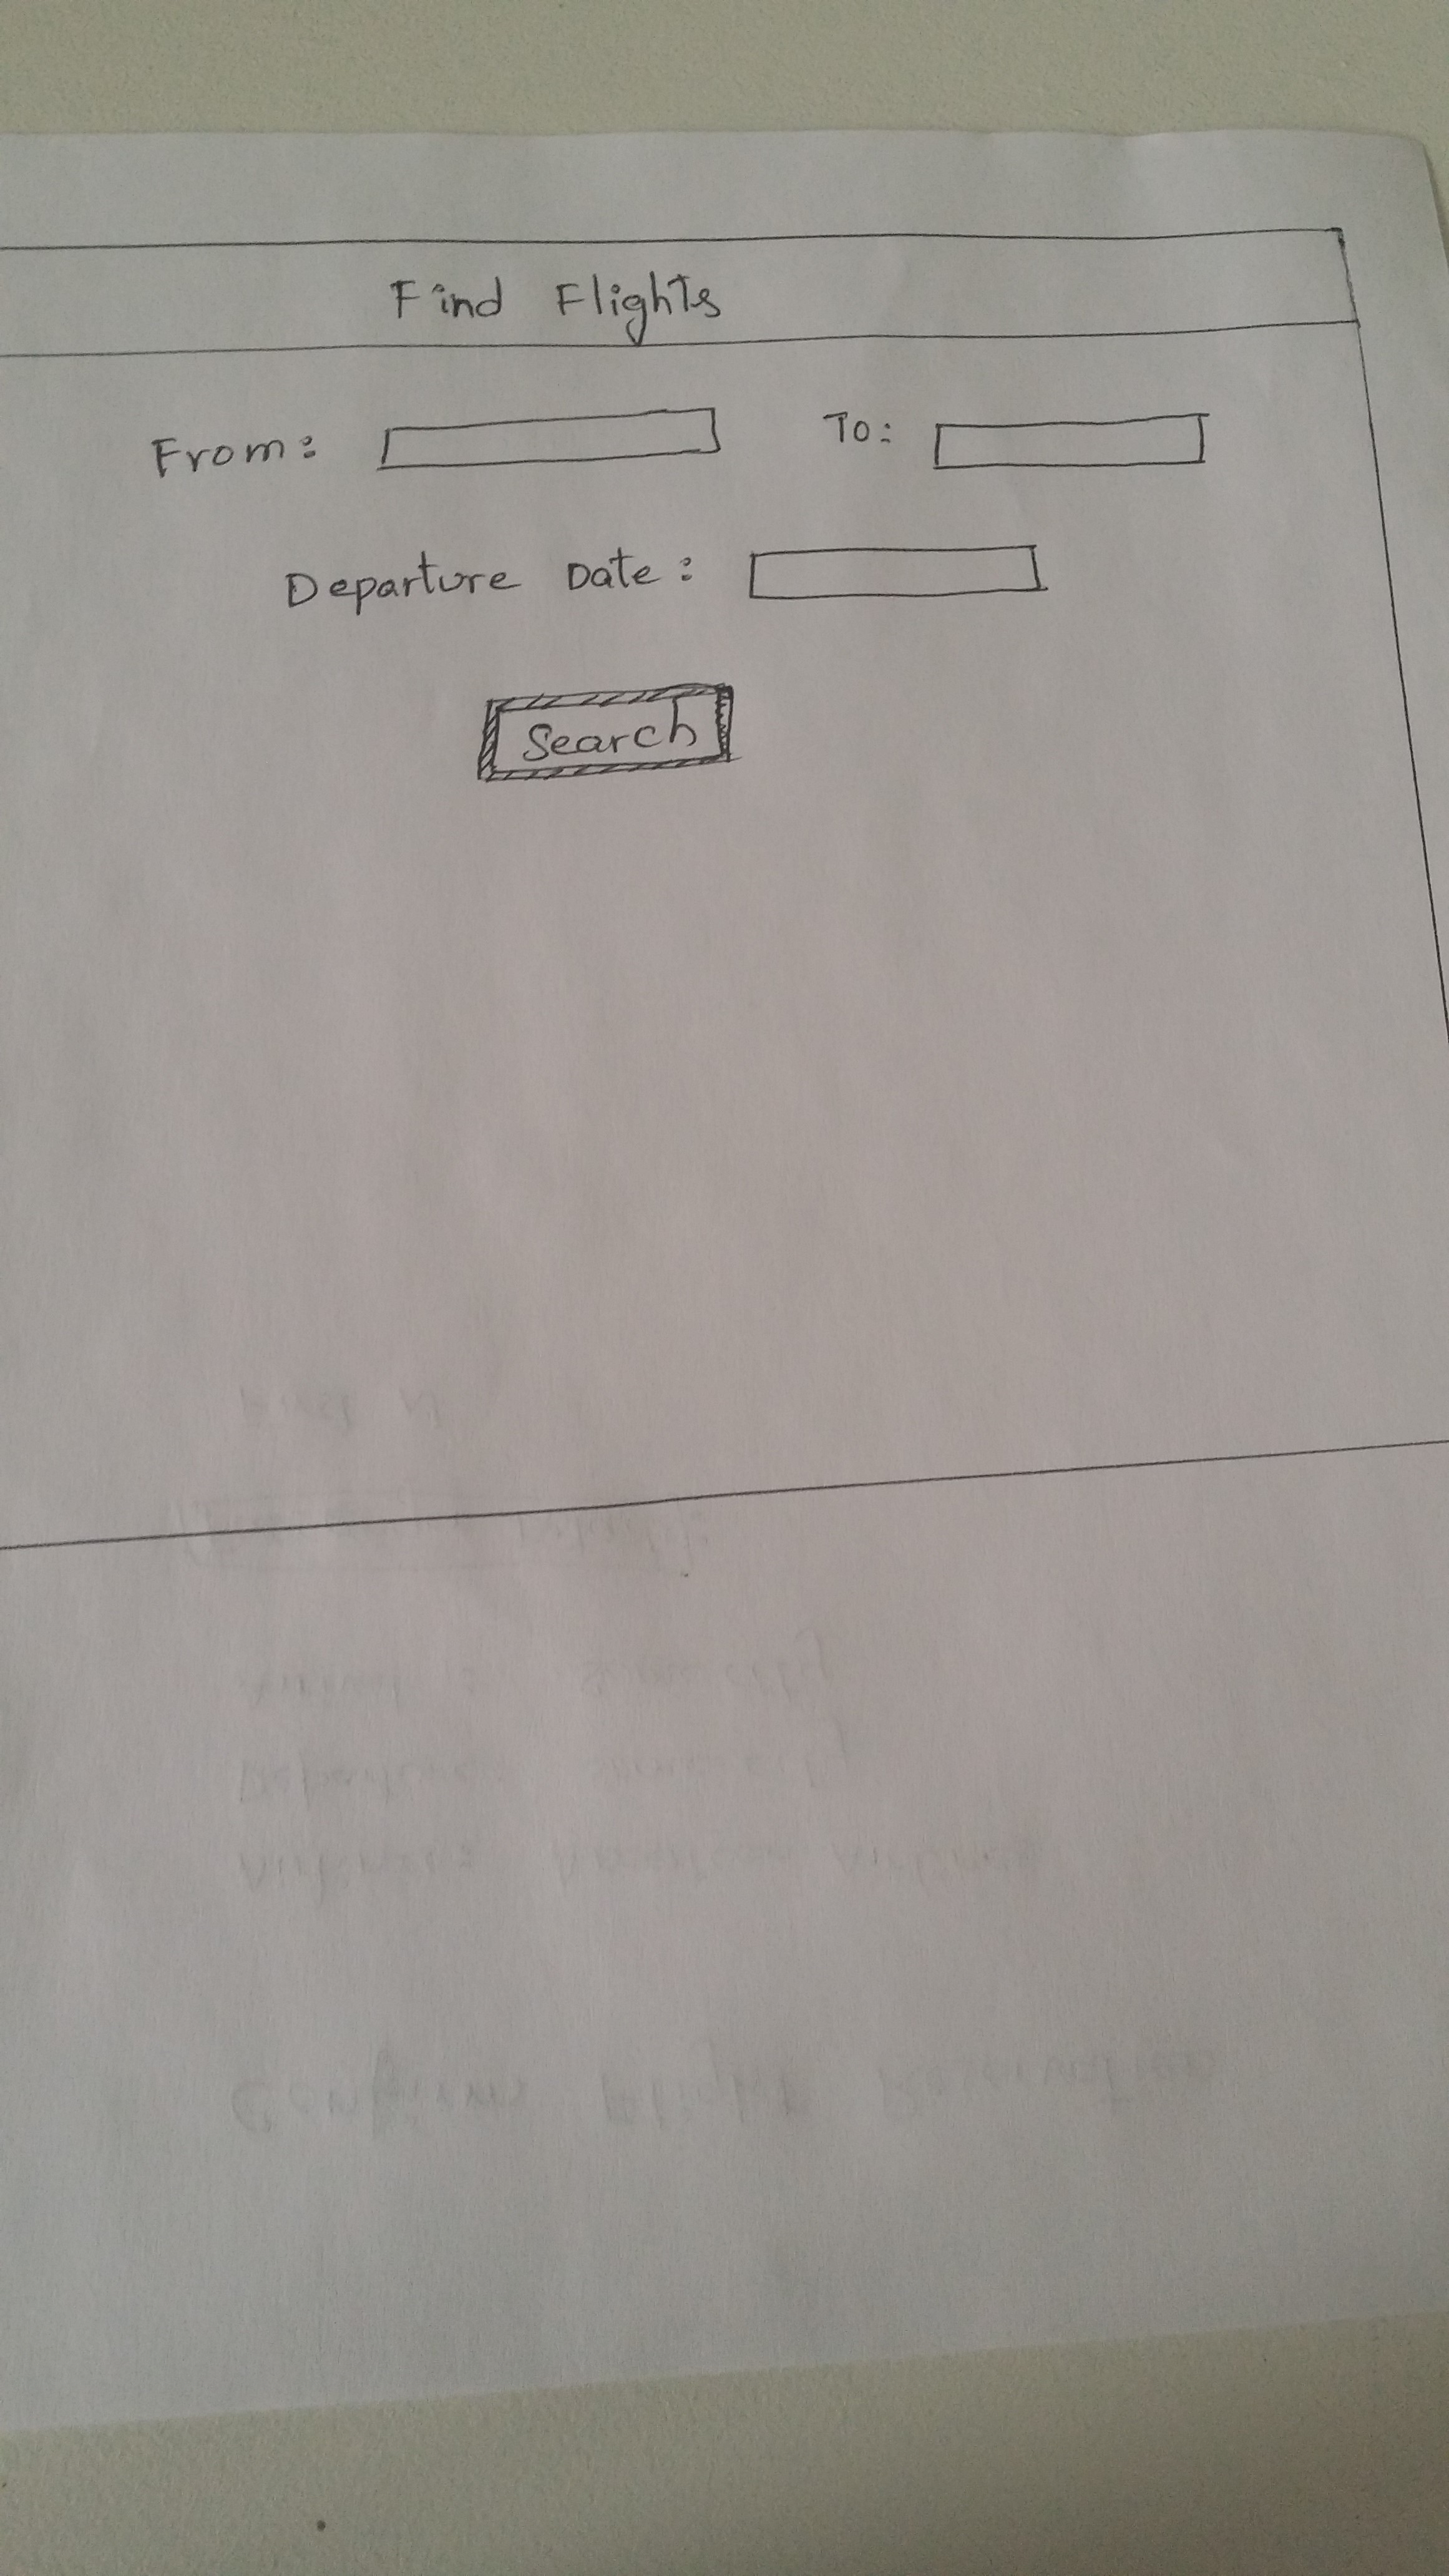 Find Flights
From: To:
Departure Date:
Search